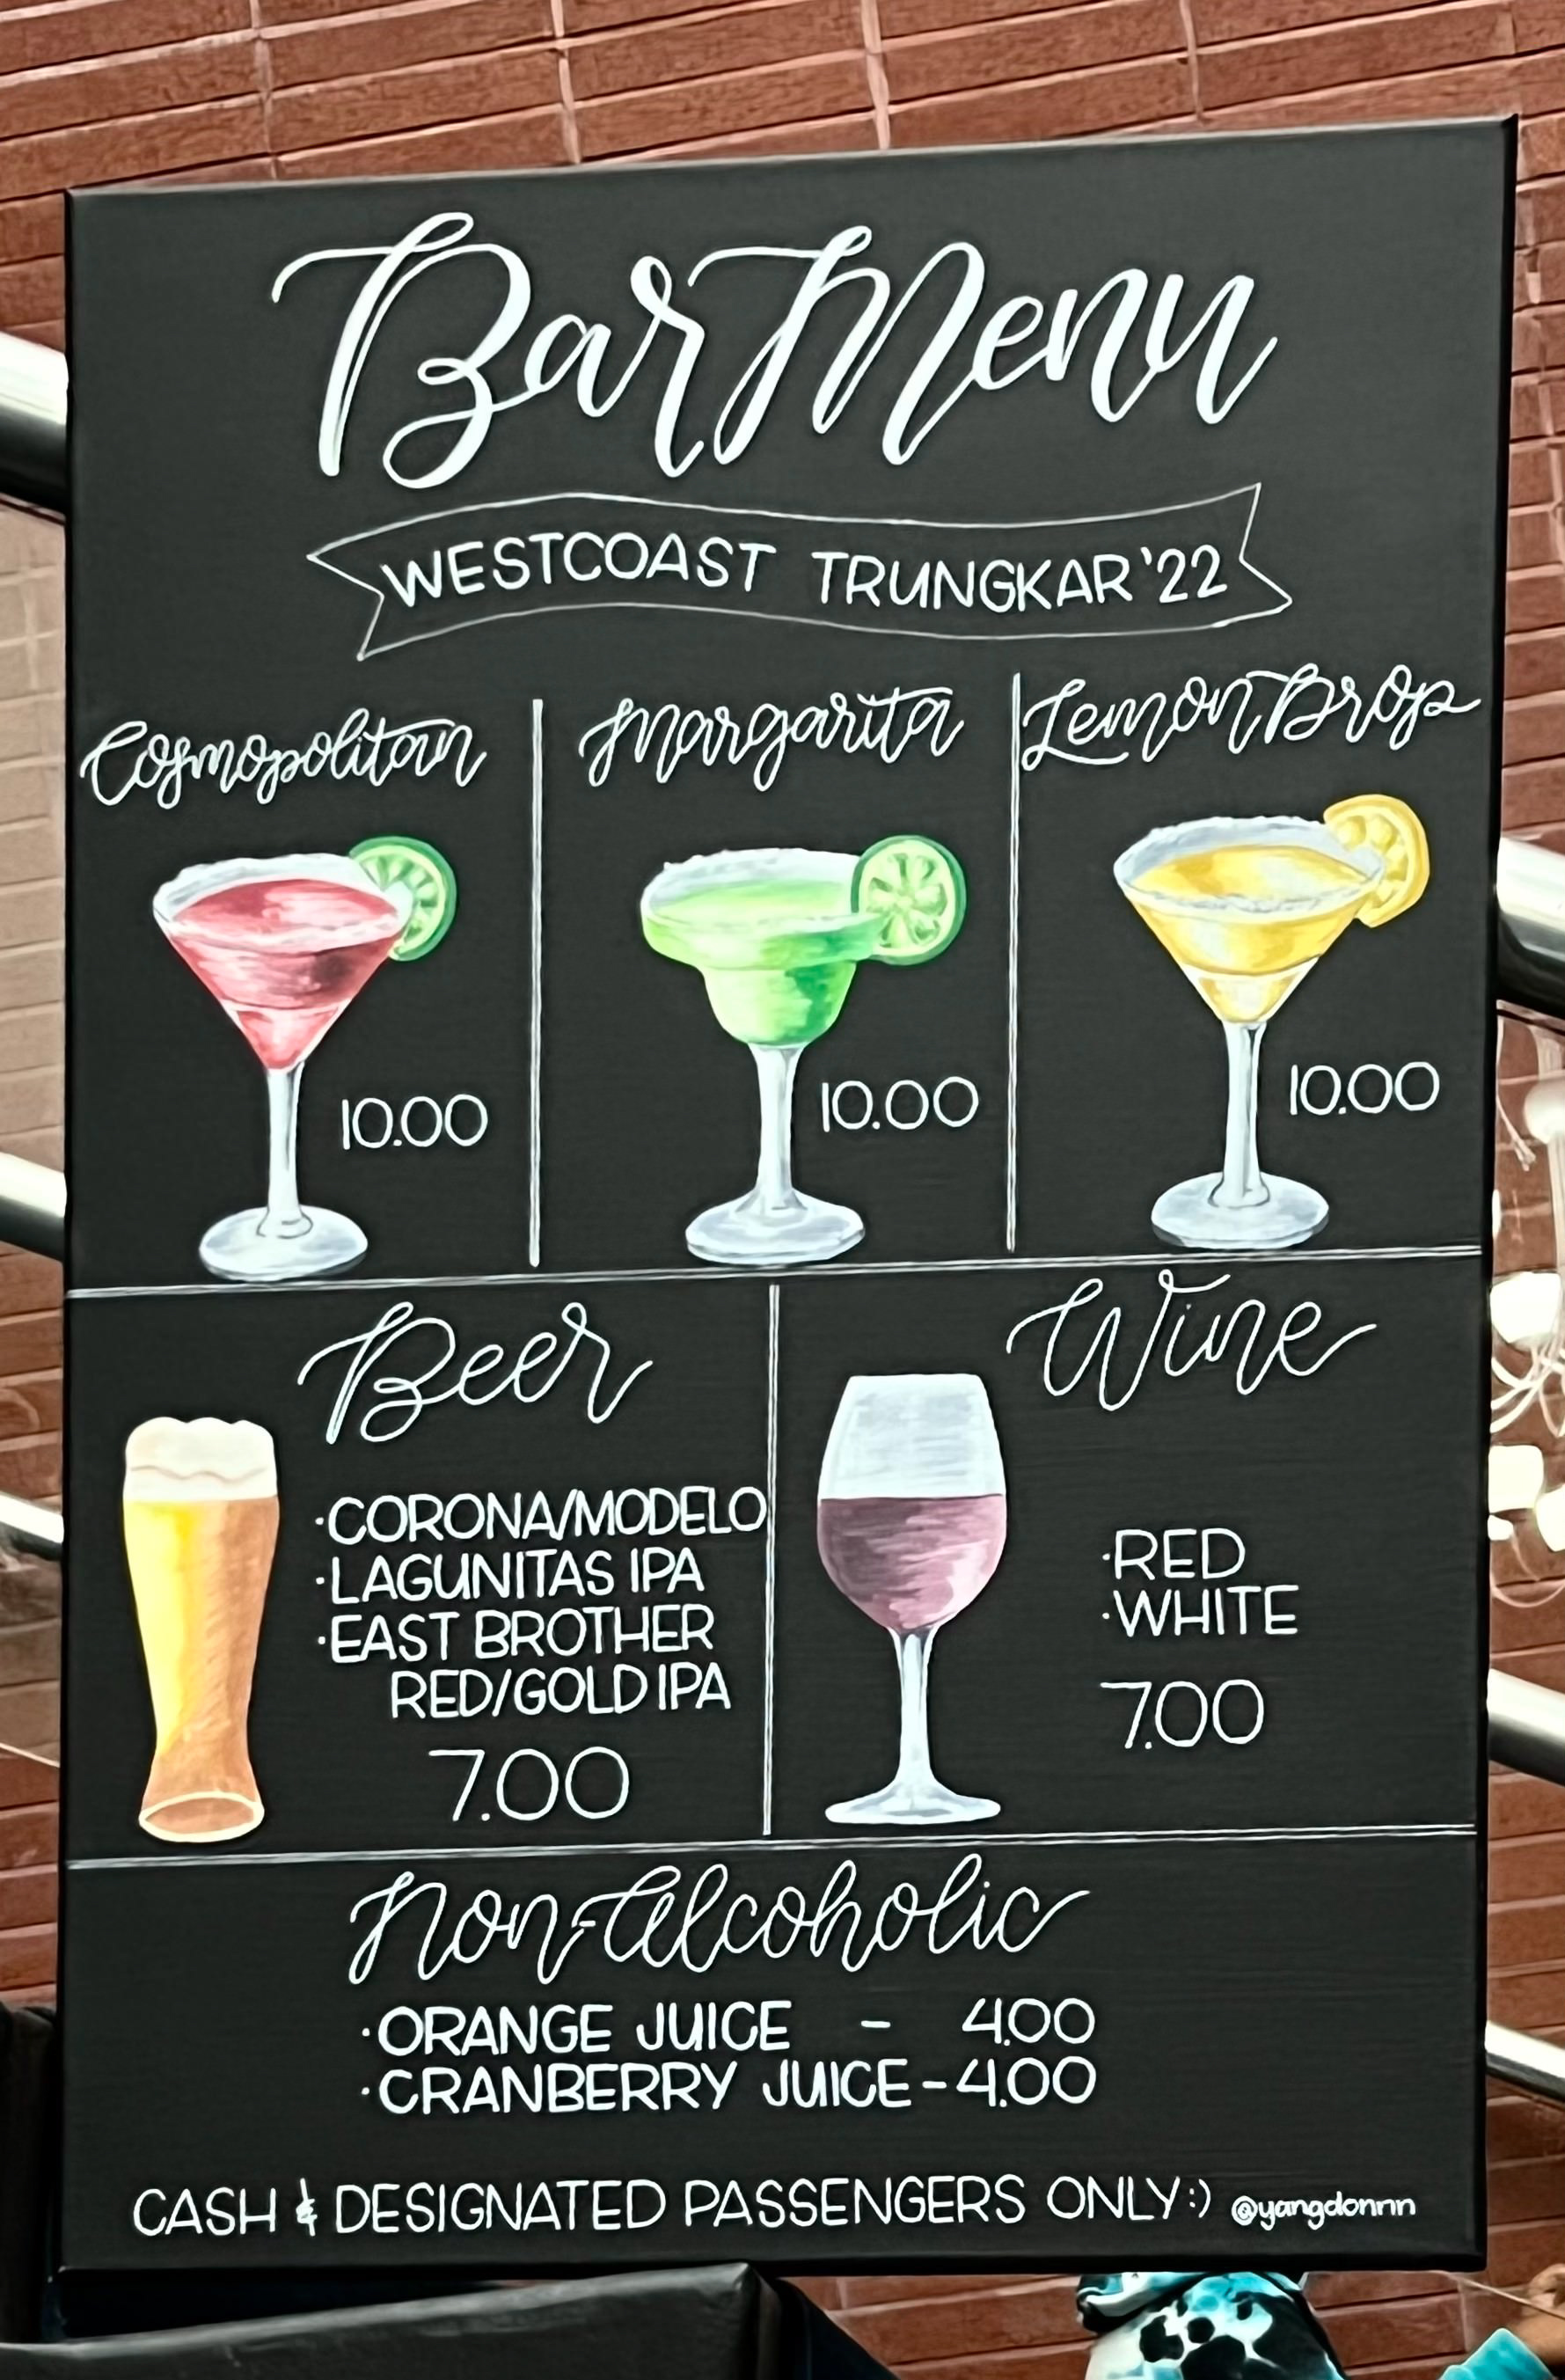 Bar Menu
WESTCOAST TRUNGKAR '22
Cosmopolitan
10.00
Margarita
10.00
Lemon Drop
10.00
Beer
·CORONA/MODELO
·LAGUNITAS IPA
·EAST BROTHER
RED/GOLD IPA
7.00
Wine
·RED
·WHITE
7.00
Non-Alcoholic
·ORANGE JUICE - 4.00
·CRANBERRY JUICE - 4.00
CASH & DESIGNATED PASSENGERS ONLY:) @yangdonnn